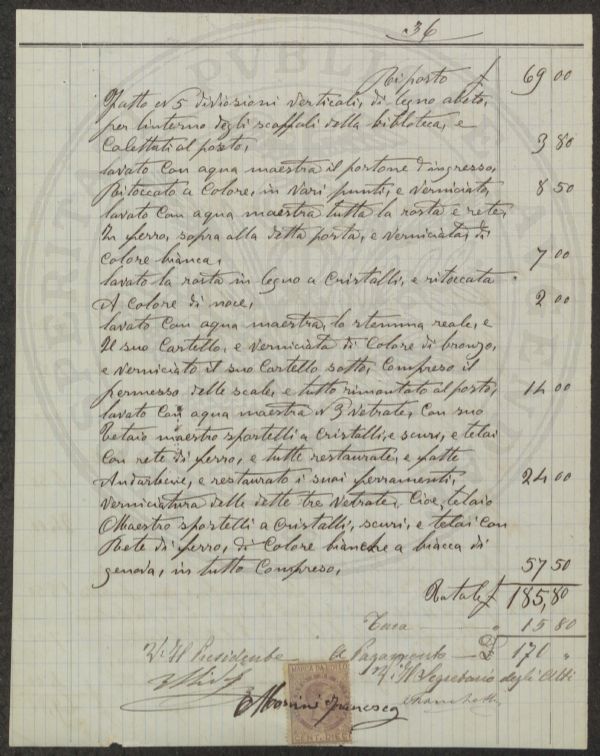 36
Riporto £ 69 00
Fatto N 5 divisioni verticali, di legno abete,
per linterno degli scaffali della biblioteca, e
Calettati al posto, 3 80
lavato con aqua maestra il portone d'ingresso,
Ritoccato a Colore, in vari punti, e verniciato, 8 50
lavato con aqua maestra tutta la rosta e rete,
In ferro, sopra alla detta porta, e verniciata, di
Colore bianca, 7 00
lavato la rosta in legno a Cristalli, e ritoccata
A Colore di noce, 2 00
lavato Con aqua maestra, lo stemma reale, e
Il suo Cartello, e verniciata di Colore di bronzo,
e verniciato il suo Cartello sotto, Compreso il
permesso delle scale, e tutto rimontato al posto, 14 00
lavato Con aqua maestra N 3 Vetrate, Con suo
telaio maestro sportelli a Cristalli, e scuri, e telai
Con rete di ferro, e tutte restaurate, e fatte
Andarbene, e restaurato i suoi ferramenti, 24 00
Verniciatura delle dette tre Vetrate, Cioe, telaio
Maestro sportelli a Cristalli, scuri, e telai Con
Rete di ferro, di Colore bianche a biacca di
genova, in tutto Compreso, 57 50
Totale £ 185,80
Tara — " 15 80
A Pagamento £ 170 "
V: Il Presidente
V: Il Segretario degli Atti
MARCA DA BOLLO
Monini Francesco
CENT. DIECI